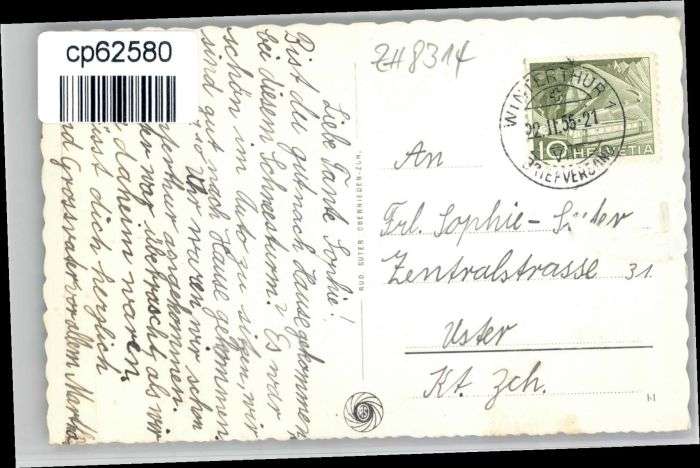 cp62580
ZH 8314
WINTERTHUR 1
22.II.55-21
BRIEFVERSAND
10 HELVETIA
Liebe Tante Sophie!
Bist du gut nach Hause gekommen
bei diesem Schneesturm? Es war
schön im Auto zu sitzen, wir
sind gut nach Hause gekommen.
wir waren wir schon
angekommen.
war überrascht, als wir
daheim waren.
dich herzlich
Grossvater, vor allem Martha
RUD. SUTER OBERRIEDEN-ZCH.
An
Frl. Sophie Suter
Zentralstrasse 31
Uster
Kt. Zch.